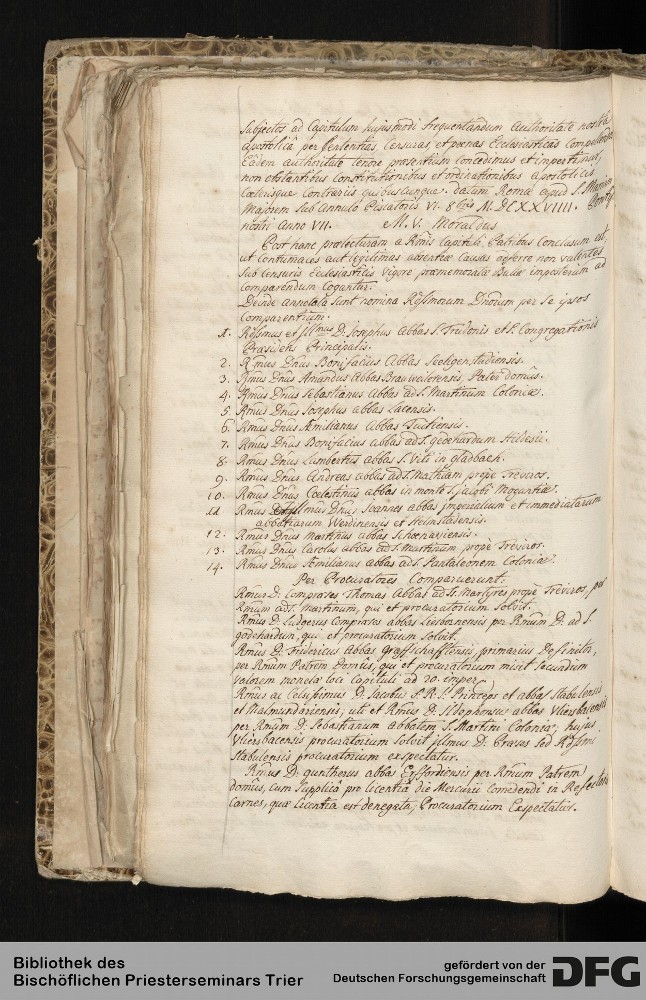 Subjectos ad Capitulum hujusmodi frequentandum Authoritate nostra
Apostolicâ per Sententias, Censuras, et poenas Ecclesiasticas compellendi
Eâdem authoritate tenore praesentium concedimus et impertimur,
non obstantibus constitutionibus et ordinationibus Apostolicis
Coeterisque Contrariis quibuscunque. datum Romae apud S. Mariam
Majorem sub Annulo Piscatoris VI. 8bris M.DCXXVIIII. Pontif.
nostri Anno VII. M. V. Moraldus
Post hanc praelecturam a Rmis Capituli Patribus Conclusum est,
ut Contumaces aut legitimas absentiae Causas afferre non valentes
sub Censuris Ecclesiasticis vigore praememoratae Bullae imposterum ad
Comparendum Cogantur.
Deinde annotata sunt nomina Rdssmorum Dnorum per se ipsos
Comparentium.
1. Rdssmus et Illmus D. Josephus Abbas S. Trudonis et S. Congregationis
Praesidens Principalis.
2. Rmus Dnus Bonifacius Abbas Seeligenstadiensis.
3. Rmus Dnus Amandus Abbas Brauweilerensis, Pater domûs.
4. Rmus Dnus Sebastianus Abbas ad S. Martinum Coloniae.
5 Rmus Dnus Josephus abbas Lacensis.
6. Rmus Dnus Aemilianus abbas Tuitiensis.
7. Rmus Dnus Bonifacius abbas ad S. godehardum Hildesii.
8. Rmus Dnus Lambertus abbas S. Viti in gladbach.
9. Rmus Dnus Andreas abbas ad S. Mathiam propè Treviros.
10. Rmus Dnus Coelestinus abbas in monte S. Jacobi Moguntiae.
11 Rmus et Illmus Dnus Joannes abbas imperialium et immediatarum
abbatiarum Werdinensis et Helmstadensis.
12. Rmus Dnus Martinus abbas Schoenaviensis.
13. Rmus Dnus Carolus abbas ad S. Martinum propè Treviros.
14. Rmus Dnus Aemilianus abbas ad S. Pantaleonem Coloniae.
Per Procuratores Comparuerunt:
Rmus D: Compraeses Thomas Abbas ad SS. Martyres propè Treviros, per
Rmum ad S. Martinum, qui et procuratorium solvit.
Rmus D: Ludgerus Compraeses abbas Liesbornensis per Rmum D: ad S.
godehardum, qui et procuratorium solvit.
Rmus D: Fridericus Abbas graffschafftensis primarius Definitor,
per Rmum Patrem Domûs, qui et procuratorium misit secundum
valorem monetae loci Capituli ad 20 imper.
Rmus ac Celsissimus D: Jacobus S. R. I. Princeps et abbas Stabulensis
et Malmundariensis, uti et Rmus D: Ildephonsus abbas Vliersbacensis
per Rmum D: Sebastianum abbatem S. Martini Coloniae; hujus
Vliersbacensis procuratorium solvit Illmus D: Praeses sed Rdssmi
Stabulensis procuratorium exspectatur.
Rmus D: guntherus abbas Erffordiensis per Rmum Patrem
domûs, cum supplicâ pro licentiâ die Mercurii Comedendi in Refectorio
Carnes, quae licentia est denegata, Procuratorium Exspectatur.
Bibliothek des
Bischöflichen Priesterseminars Trier
gefördert von der
Deutschen Forschungsgemeinschaft
DFG